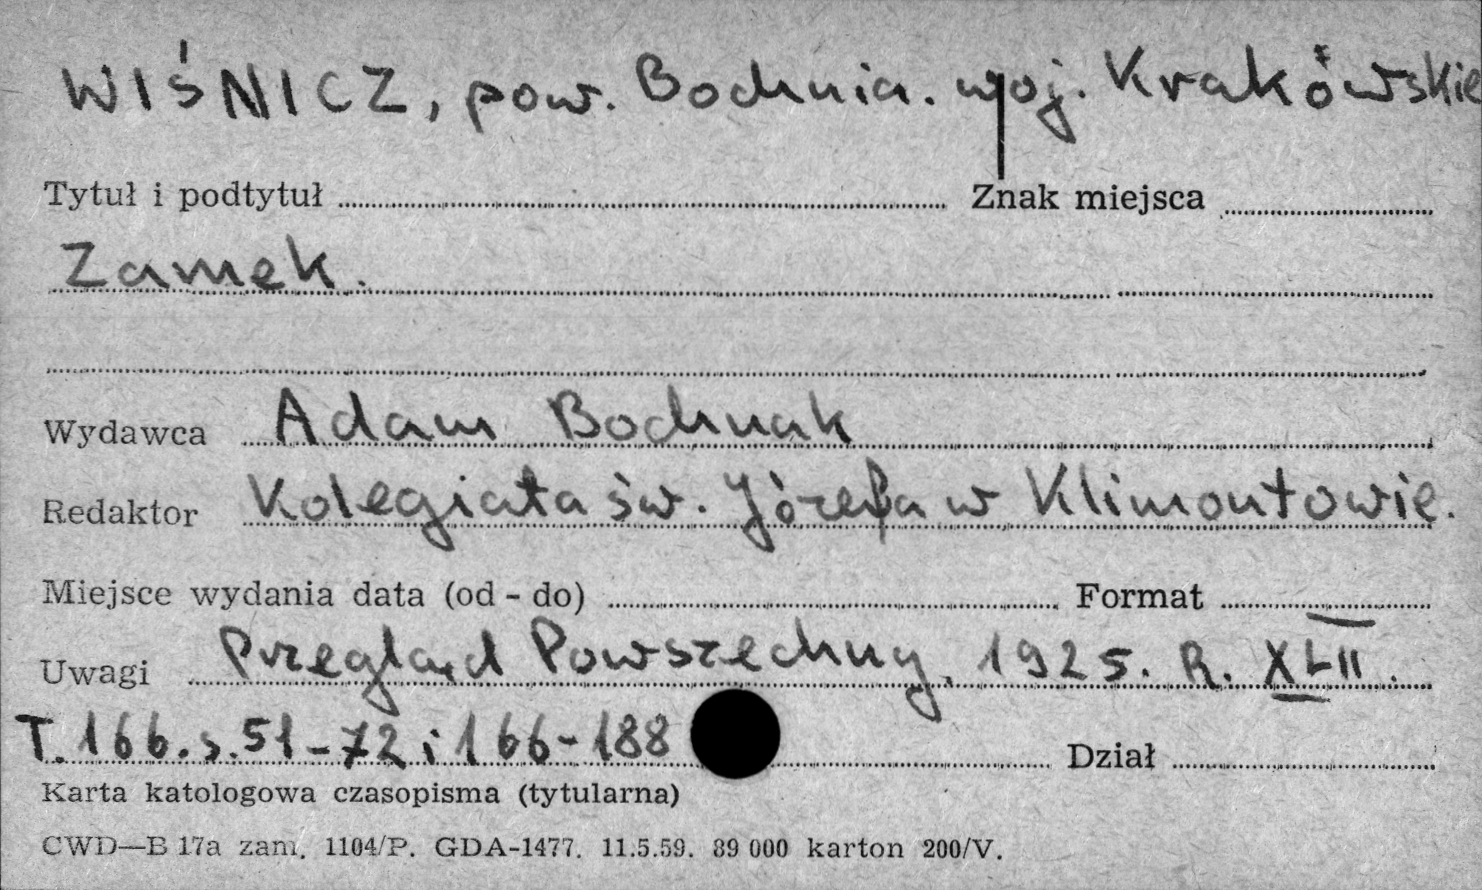 WIŚNICZ, pow. Bochnia. woj. Krakówskie
Tytuł i podtytuł Znak miejsca
Zamek.
Wydawca Adam Bochnak
Redaktor Kolegiata św. Józefa w Klimontowie.
Miejsce wydania data (od - do) Format
Uwagi Przegląd Powszechny, 1925. R. XLII.
T. 166. s. 51-72 i 166-188 Dział
Karta katologowa czasopisma (tytularna)
CWD—B 17a zam. 1104/P. GDA-1477. 11.5.59. 89 000 karton 200/V.